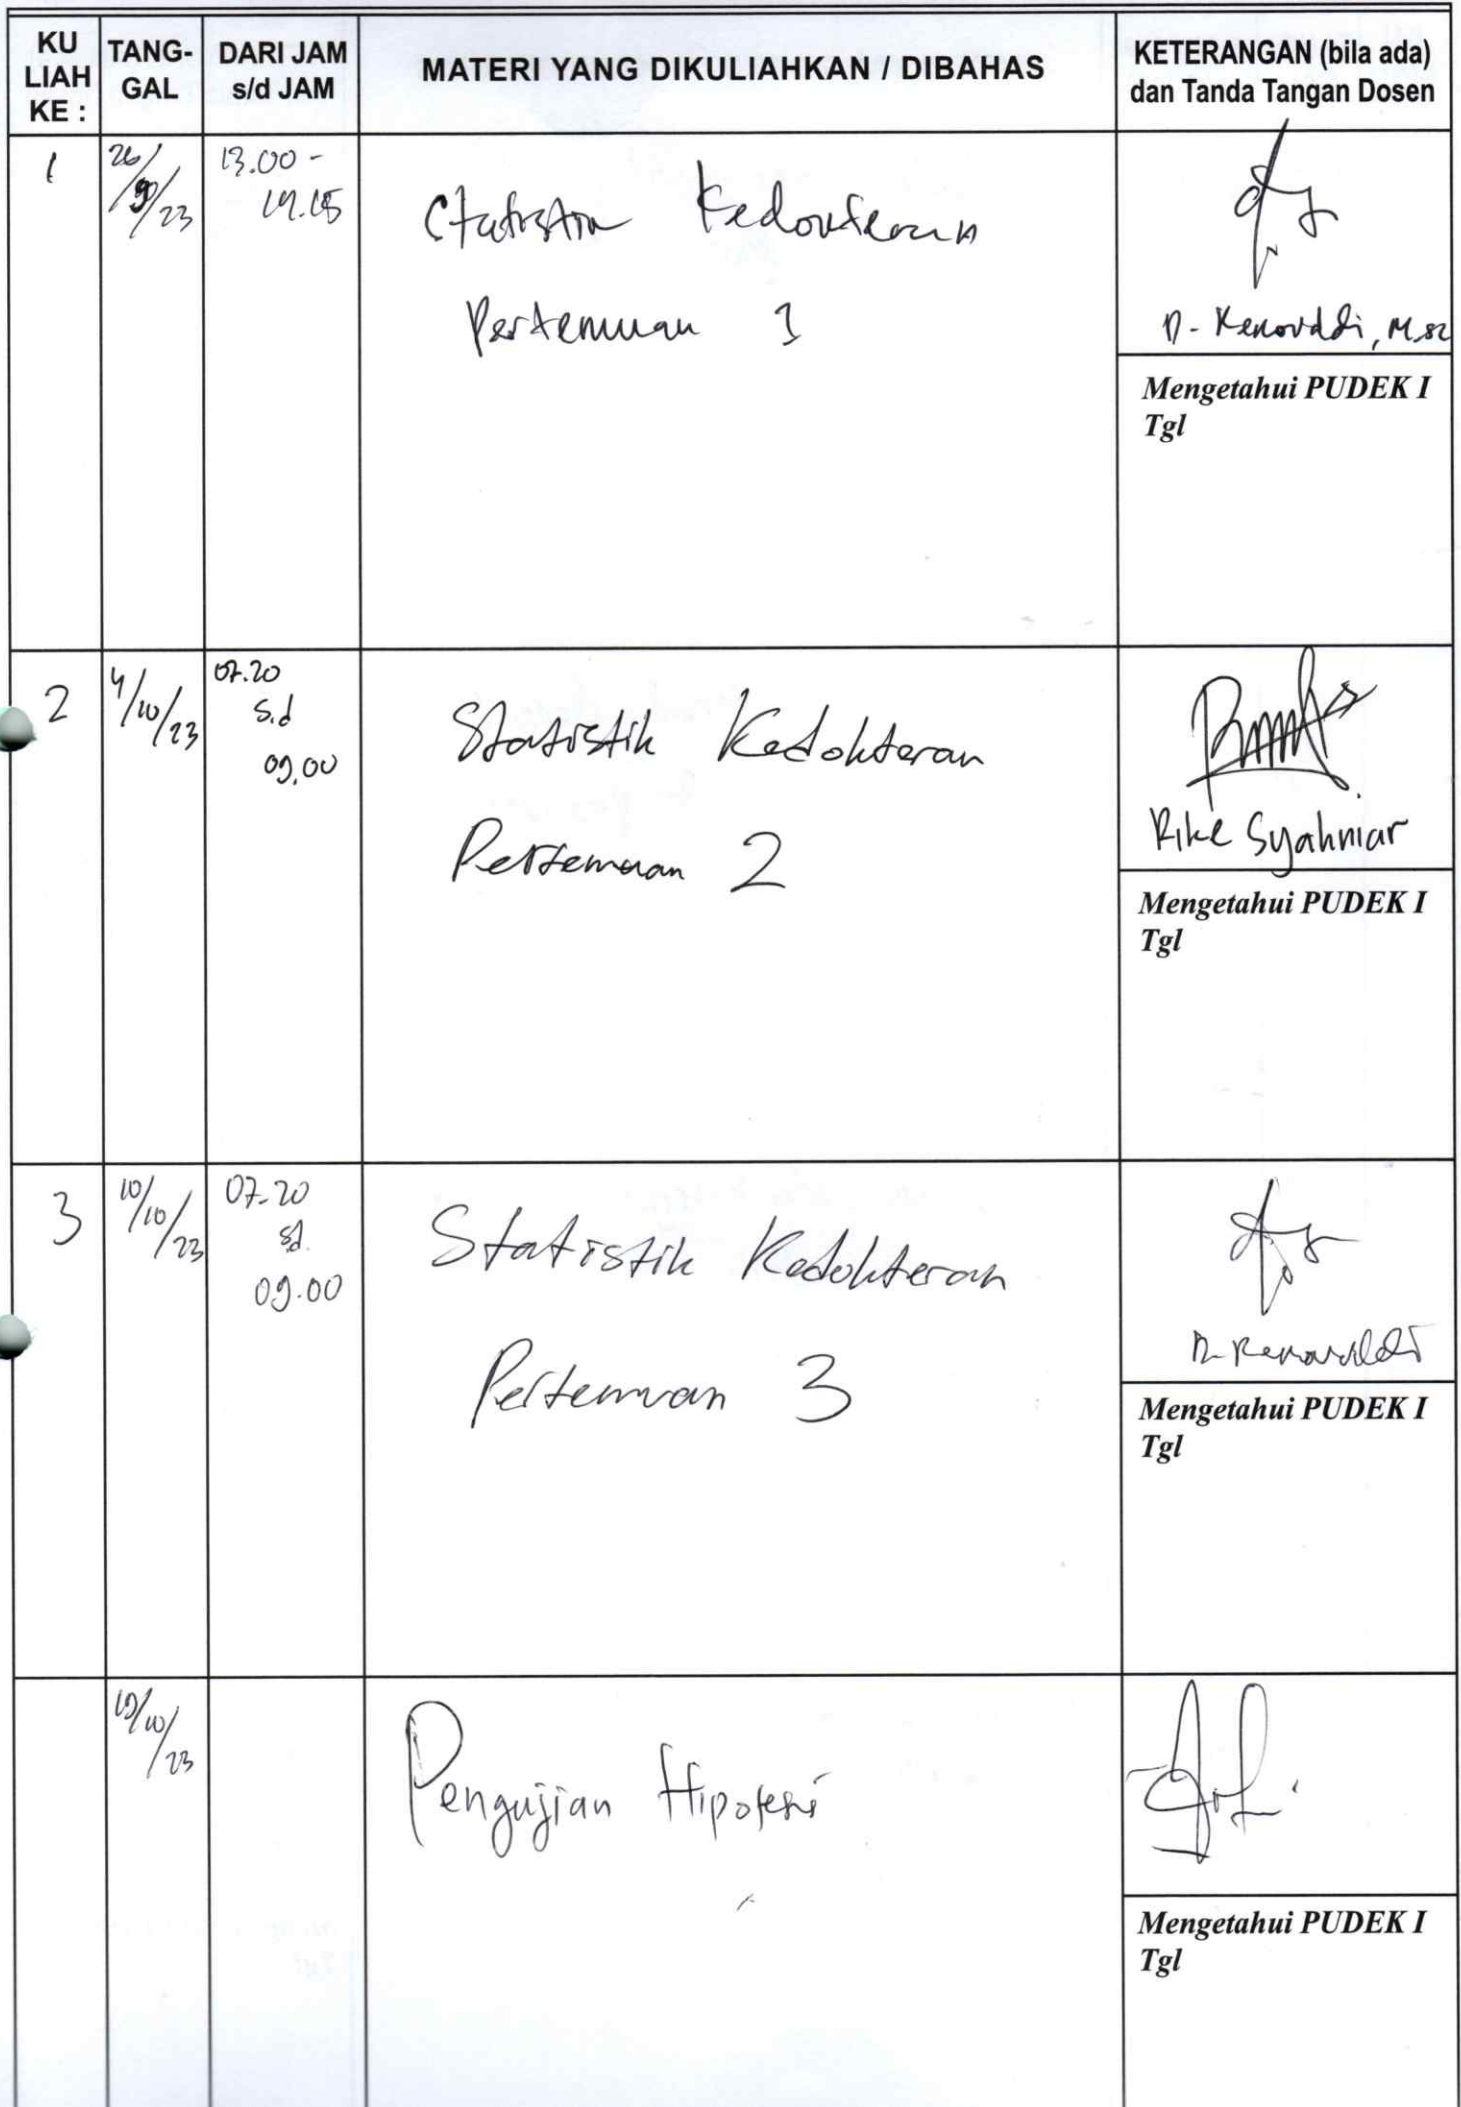 KU LIAH KE :
TANG-GAL
DARI JAM s/d JAM
MATERI YANG DIKULIAHKAN / DIBAHAS
KETERANGAN (bila ada)
dan Tanda Tangan Dosen
1
26/9/23
13.00 -
Kedokteran
Pertemuan 1
Mengetahui PUDEK I
Tgl
2
4/10/23
07.20
s.d
09.00
Statistik Kedokteran
Pertemuan 2
Rike Syahniar
Mengetahui PUDEK I
Tgl
3
10/10/23
07.20
sd.
09.00
Statistik Kedokteran
Pertemuan 3
Mengetahui PUDEK I
Tgl
Pengujian Hipotesi
Mengetahui PUDEK I
Tgl